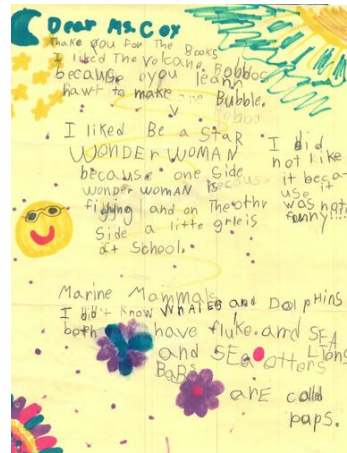 Dear Ms Cox
Thake you for the Books
I liked The volcano
because you leann
hawt to make Bubble.
I liked Be a StaR
WONDER WOMAN
because one side
wonder womAN is
figjhging and on The othr
side a litte grleis
at School.
I did
not like
it beca-
use it
was not
funny!!!!
Marine Mammals
I did't know WhAles and DolpHins
both have fluke. and SEA
LIONS
and SEA otters
BaBs
are called
paps.